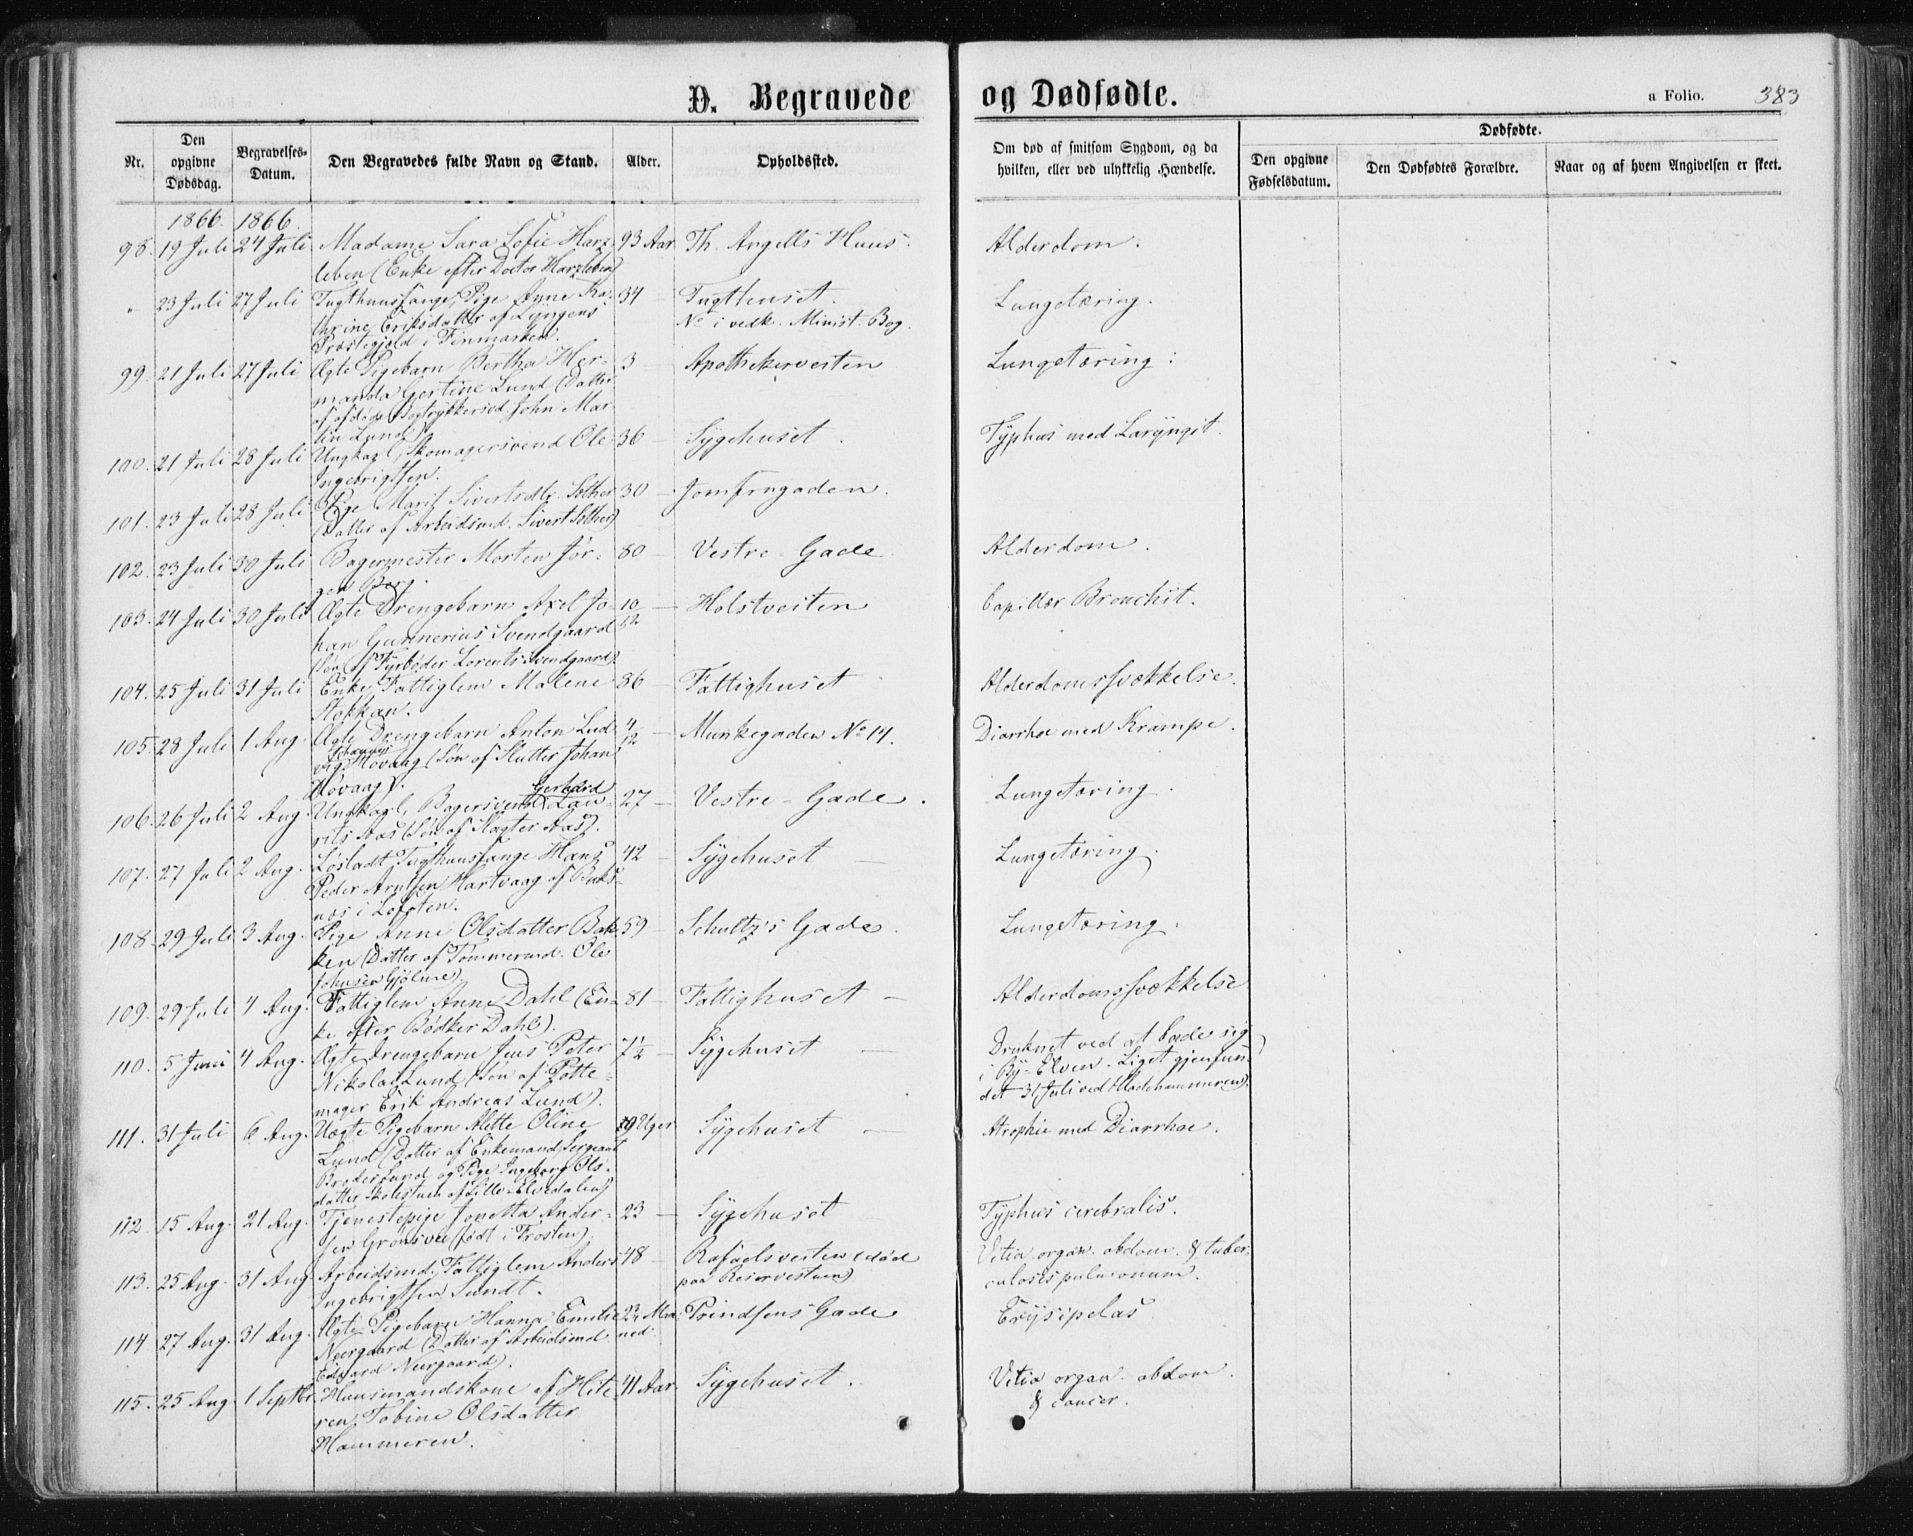 D. Begravede og Dødfødte.
a Folio. 383
Nr. | Den opgivne Dødsdag. | Begravelses-Datum. | Den Begravedes fulde Navn og Stand. | Alder. | Opholdssted. | Om død af smitsom Sygdom, og da hvilken, eller ved ulykkelig Hændelse. | Dødfødte. | Den opgivne Fødselsdatum. | Den Dødfødtes Forældre. | Naar og af hvem Angivelsen er skeet.
1866. 1866.
98. 19 Juli 24 Juli Madame Sara Sofie Harz- 93 Aar Th. Angells Huus. Alderdom.
leben (Enke efter Doctor Harzleben)
" 23 Juli 27 Juli Tugthuusfange, Pige Anne Ka- 34 — Tugthuset. Lungetæring.
thrine Eriksdatter af Lyngens No i vedk. Minist. Bog.
Præstegjeld i Finmarken.
99. 21 Juli 27 Juli Ægte Pigebarn Bertha Her- 3 — Apothekerveiten Lungetæring.
manda Gertine Lund (Datter
af afdøde Bogtrykkersvd. John Mar-
tin Lund)
100. 21 Juli 28 Juli Ungkarl, Skomagersvend Ole 36 — Sygehuset. Typhus med Laryngit.
Ingebrigtsen.
101. 23 Juli 28 Juli Pige Marit Sivertsdtr. Sæther 30 — Jomfrugaden.
(Datter af Arbeidsmd. Sivert Sæther)
102. 23 Juli 30 Juli Bagermester Morten Jør- 80 — Vestre Gade Alderdom.
gen Berg.
103. 24 Juli 30 Juli Ægte Drengebarn Axel Jo- 10/12 — Holstveiten Capillær Bronchit.
han Gunnerius Svendgaard
(Søn af Fyrbøder Lorents Svendgaard)
104. 25 Juli 31 Juli Enke, Fattiglem Malene 86 — Fattighuset Alderdomssvækkelse.
Stokkan.
105. 28 Juli 1 Aug. Ægte Drengebarn Anton Lud- 4/12 — Munkegaden No 14. Diarrhoe med Krampe.
vig Johannes Hovaag (Søn af Slutter Johan
Hovaag).
106. 26 Juli 2 Aug. Ungkarl, Bagersvend Gerhard Lau- 27 — Vestre-Gade. Lungetæring.
rits Aas (Søn af Slagter Aas).
107. 27 Juli 2 Aug. Løsladt Tugthuusfange Hans 42 — Sygehuset — Lungetæring.
Peder Arntsen Hartvaag af Buks-
næs i Lofoten.
108. 29 Juli 3 Aug. Pige Anne Olsdatter Bak- 59 — Schultz's Gade. Lungetæring.
ken (Datter af Tømmermd. Ole
Johnsen Gjølme)
109. 29 Juli 4 Aug. Fattiglem Anne Dahl (En- 81 — Fattighuset — Alderdomssvækkelse
ke efter Bødker Dahl).
110. 5 Juni 4 Aug. Ægte Drengebarn Jens Peter 7½ — Sygehuset — Druknet ved at bade sig
Nikolai Lund (Søn af Potte- i By-Elven. Liget gjenfun-
mager Erik Andreas Lund). det 31 Juli ved Ladehammeren).
111. 31 Juli 6 Aug. Uægte Pigebarn Alette Oline 19 Uger Sygehuset — Atrophie med Diarrhoe.
Lund (Datter af Enkemand Sergeant
Broder Lund og Pige Ingeborg Ols-
datter Skolestuen af Lille-Elvedalen)
112. 15 Aug. 21 Aug. Tjenestepige Jonetta Ander- 23 — Sygehuset Typhus cerebralis.
sen Grønsvee (født i Frosten).
113. 25 Aug. 31 Aug. Arbeidsmd., Fattiglem Anders 48 — Rafaelsveiten (død Vitia organ. abdom. & tuber-
Ingebrigtsen Sundt. paa Reservestuen) culosis pulmonum.
114 27 Aug. 31 Aug. Ægte Pigebarn Hanna Emilie 22 Maa- Prindsens Gade Erysipelas
Neergaard (Datter af Arbeidsmd ned.
Edvard Neergaard).
115. 25 Aug. 1 Septbr. Huusmandskone af Hite- 41 Aar Sygehuset. Vitia organ. abdom.
ren Tobine Olsdatter & cancer.
Hammeren.